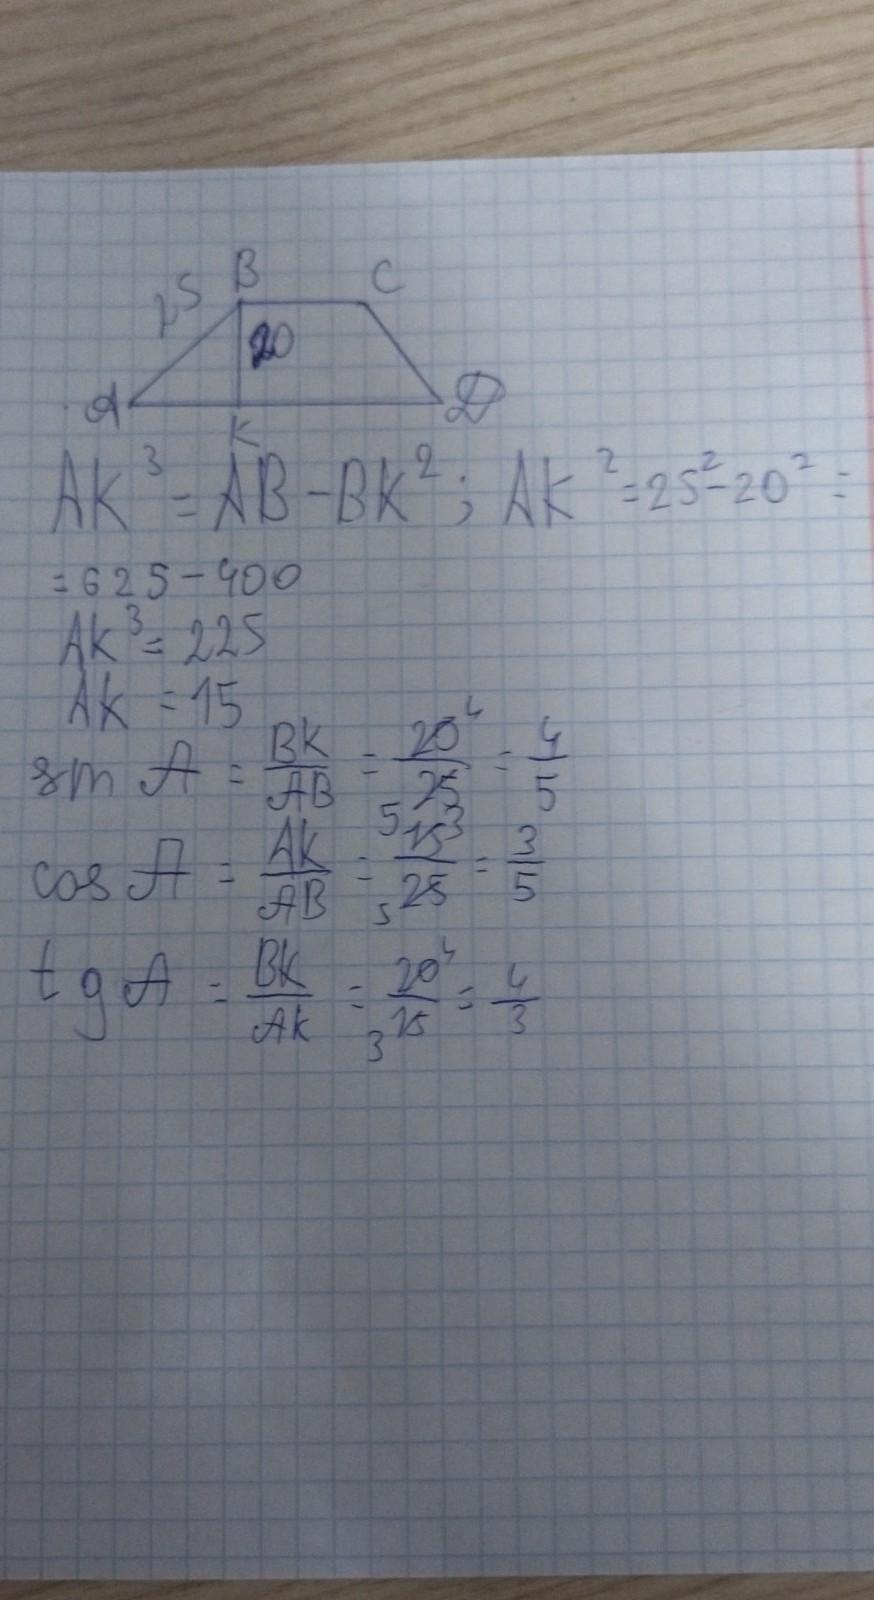 B C
25
20
A D
K
AK³ = AB - BK²; AK² = 25² - 20² =
= 625 - 400
AK³ = 225
AK = 15
sin A = BK/AB = 20⁴/25 5 = 4/5
cos A = AK/AB = 15³/25 5 = 3/5
tg A = BK/AK = 20⁴/15 3 = 4/3